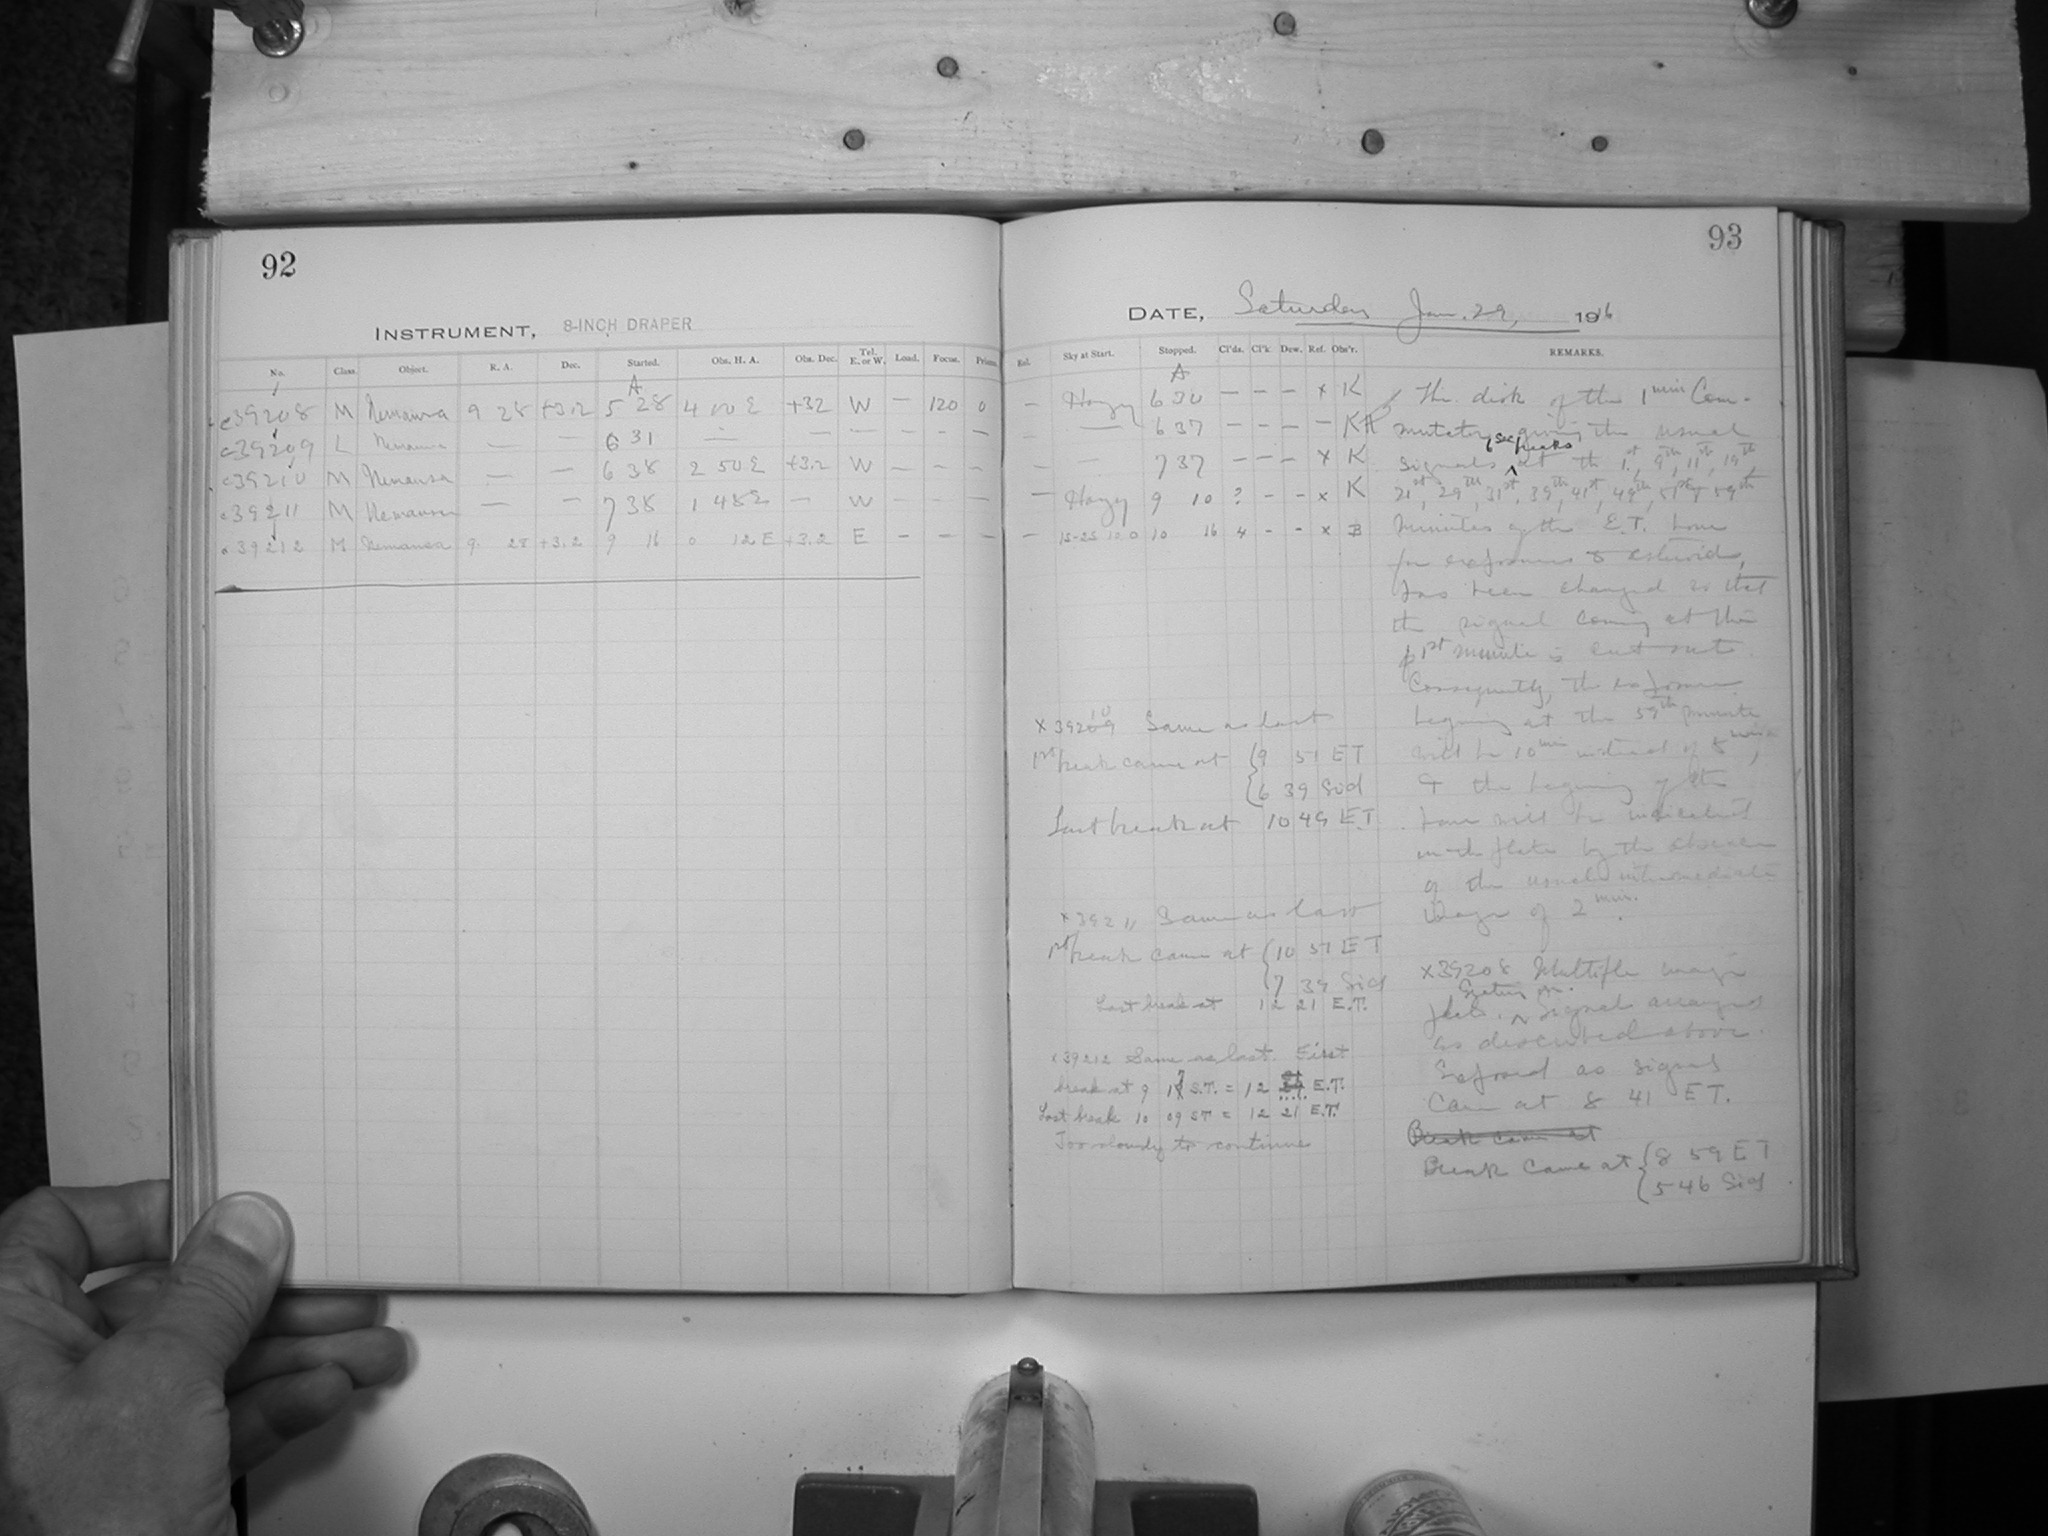 92
INSTRUMENT, 8-INCH DRAPER
No. Class Object. R. A. Dec. Started. Obs. H. A. Obs. Dec. Tel. E. or W. Load. Focus. Prism.
A
c39208 M Nemausa 9 28 +3.2 5 28 4 00 E +32 W — 120 0
c39209 L Nemausa — — 6 31 — — — — — —
c39210 M Nemausa — — 6 38 2 50 E +3.2 W — — —
c39211 M Nemausa — — 7 38 1 48 E — W — — —
c39212 M Nemausa 9 28 +3.2 9 16 0 12 E +3.2 E — — —
93
DATE, Saturday Jan. 29, 1916
Rel. Sky at Start. Stopped. Cl'ds. Cl'k Dew. Ref. Obs'r. REMARKS.
A
— Hazy 6 30 — — — x K
— — 6 37 — — — —
— — 7 37 — — — x K
— Hazy 9 10 ? - - x K
— 10 16 4 - - x B
The disk of the 1 min Com-
mutator, giving the usual
signals 6 sec breaks at the 1st, 9th, 11th, 19th,
21st, 29th, 31st, 39th, 41st, 49th, 51st & 59th
minutes of the E.T. hour
for exposures to asteroids,
has been changed so that
the signal coming at the
1st minute is cut out.
Consequently, the exposure
begining at the 59th minute
will be 10 min instead of 8 min,
& the begining of the
hour will be indicated
on the plate by the absence
of the usual intermediate
of 2 min.
x39208 Multiple image
Signal arranged
as described above.
Exposed as signal
came at 8 41 ET.
Break came at
Break came at { 8 59 ET
{ 5 46 Sid
x39210 Same as last
1st break came at { 9 51 ET
{ 6 39 Sid
Last break at 10 49 E.T.
x39211 Same as last
1st break came at { 10 51 ET
{ 7 39 Sid
Last break at 12 21 E.T.
x39212 Same as last. First
break at 9 17 S.T. = 12 E.T.
Last break 10 09 ST = 12 21 E.T.
Too cloudy to continue